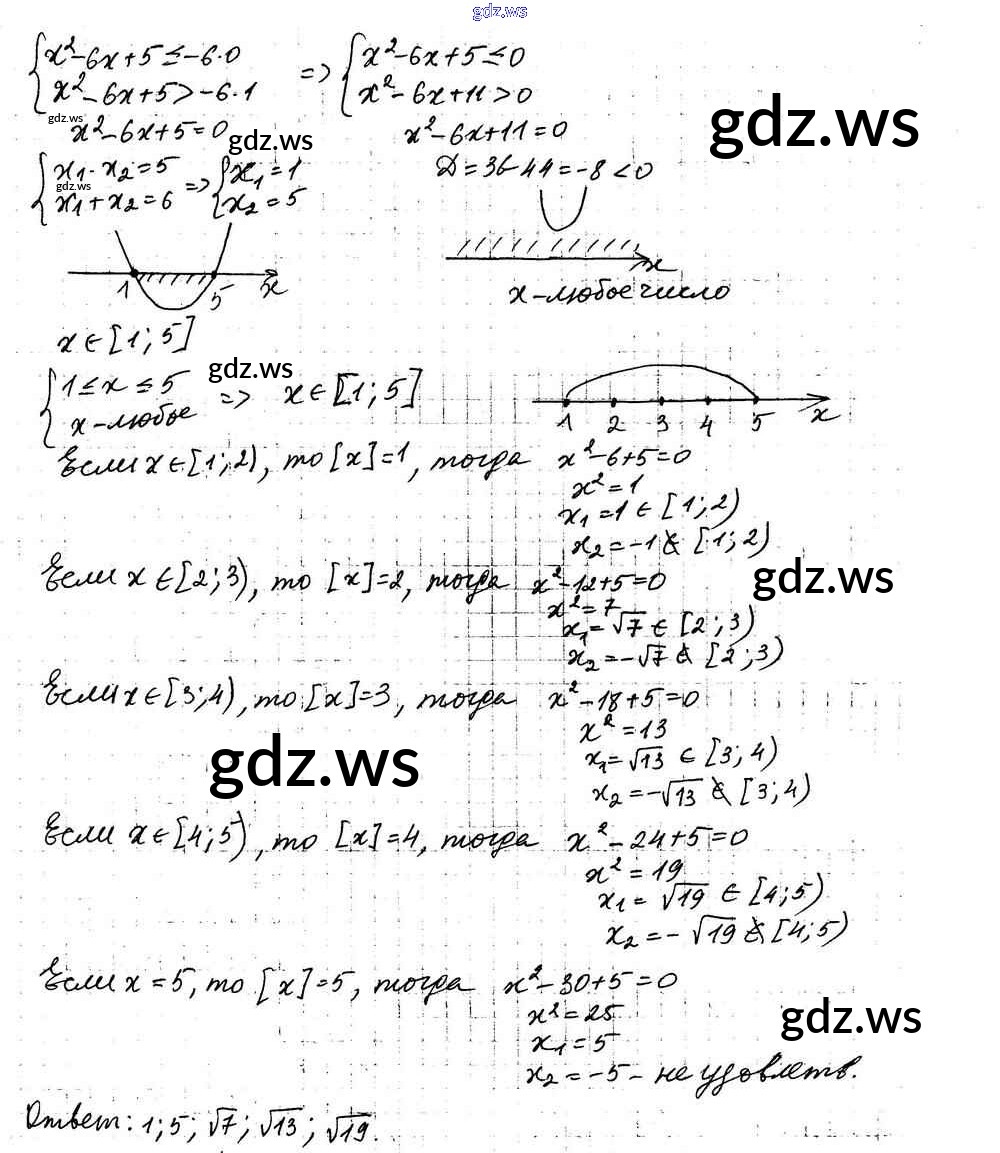 gdz.ws
{ x²-6x+5≤-6·0 => { x²-6x+5≤0
x²-6x+5>-6·1 x²-6x+11>0
gdz.ws
x²-6x+5=0 x²-6x+11=0
gdz.ws gdz.ws
{ x₁·x₂=5 => { x₁=1 D=36-44=-8<0
x₁+x₂=6 x₂=5
gdz.ws
1 5 x x
x-любое число
x∈[1;5]
gdz.ws
{ 1≤x≤5 => x∈[1;5]
x-любое
1 2 3 4 5 x
Если x∈[1;2), то [x]=1, тогда x²-6+5=0
x²=1
x₁=1∈[1;2)
x₂=-1∉[1;2)
Если x∈[2;3), то [x]=2, тогда x²-12+5=0
gdz.ws
x²=7
x₁=√7∈[2;3)
x₂=-√7∉[2;3)
Если x∈[3;4), то [x]=3, тогда x²-18+5=0
x²=13
gdz.ws
x₁=√13∈[3;4)
x₂=-√13∉[3;4)
Если x∈[4;5), то [x]=4, тогда x²-24+5=0
x²=19
x₁=√19∈[4;5)
x₂=-√19∉[4;5)
Если x=5, то [x]=5, тогда x²-30+5=0
gdz.ws
x²=25
x₁=5
x₂=-5-не удовлетв.
Ответ: 1;5;√7;√13;√19.